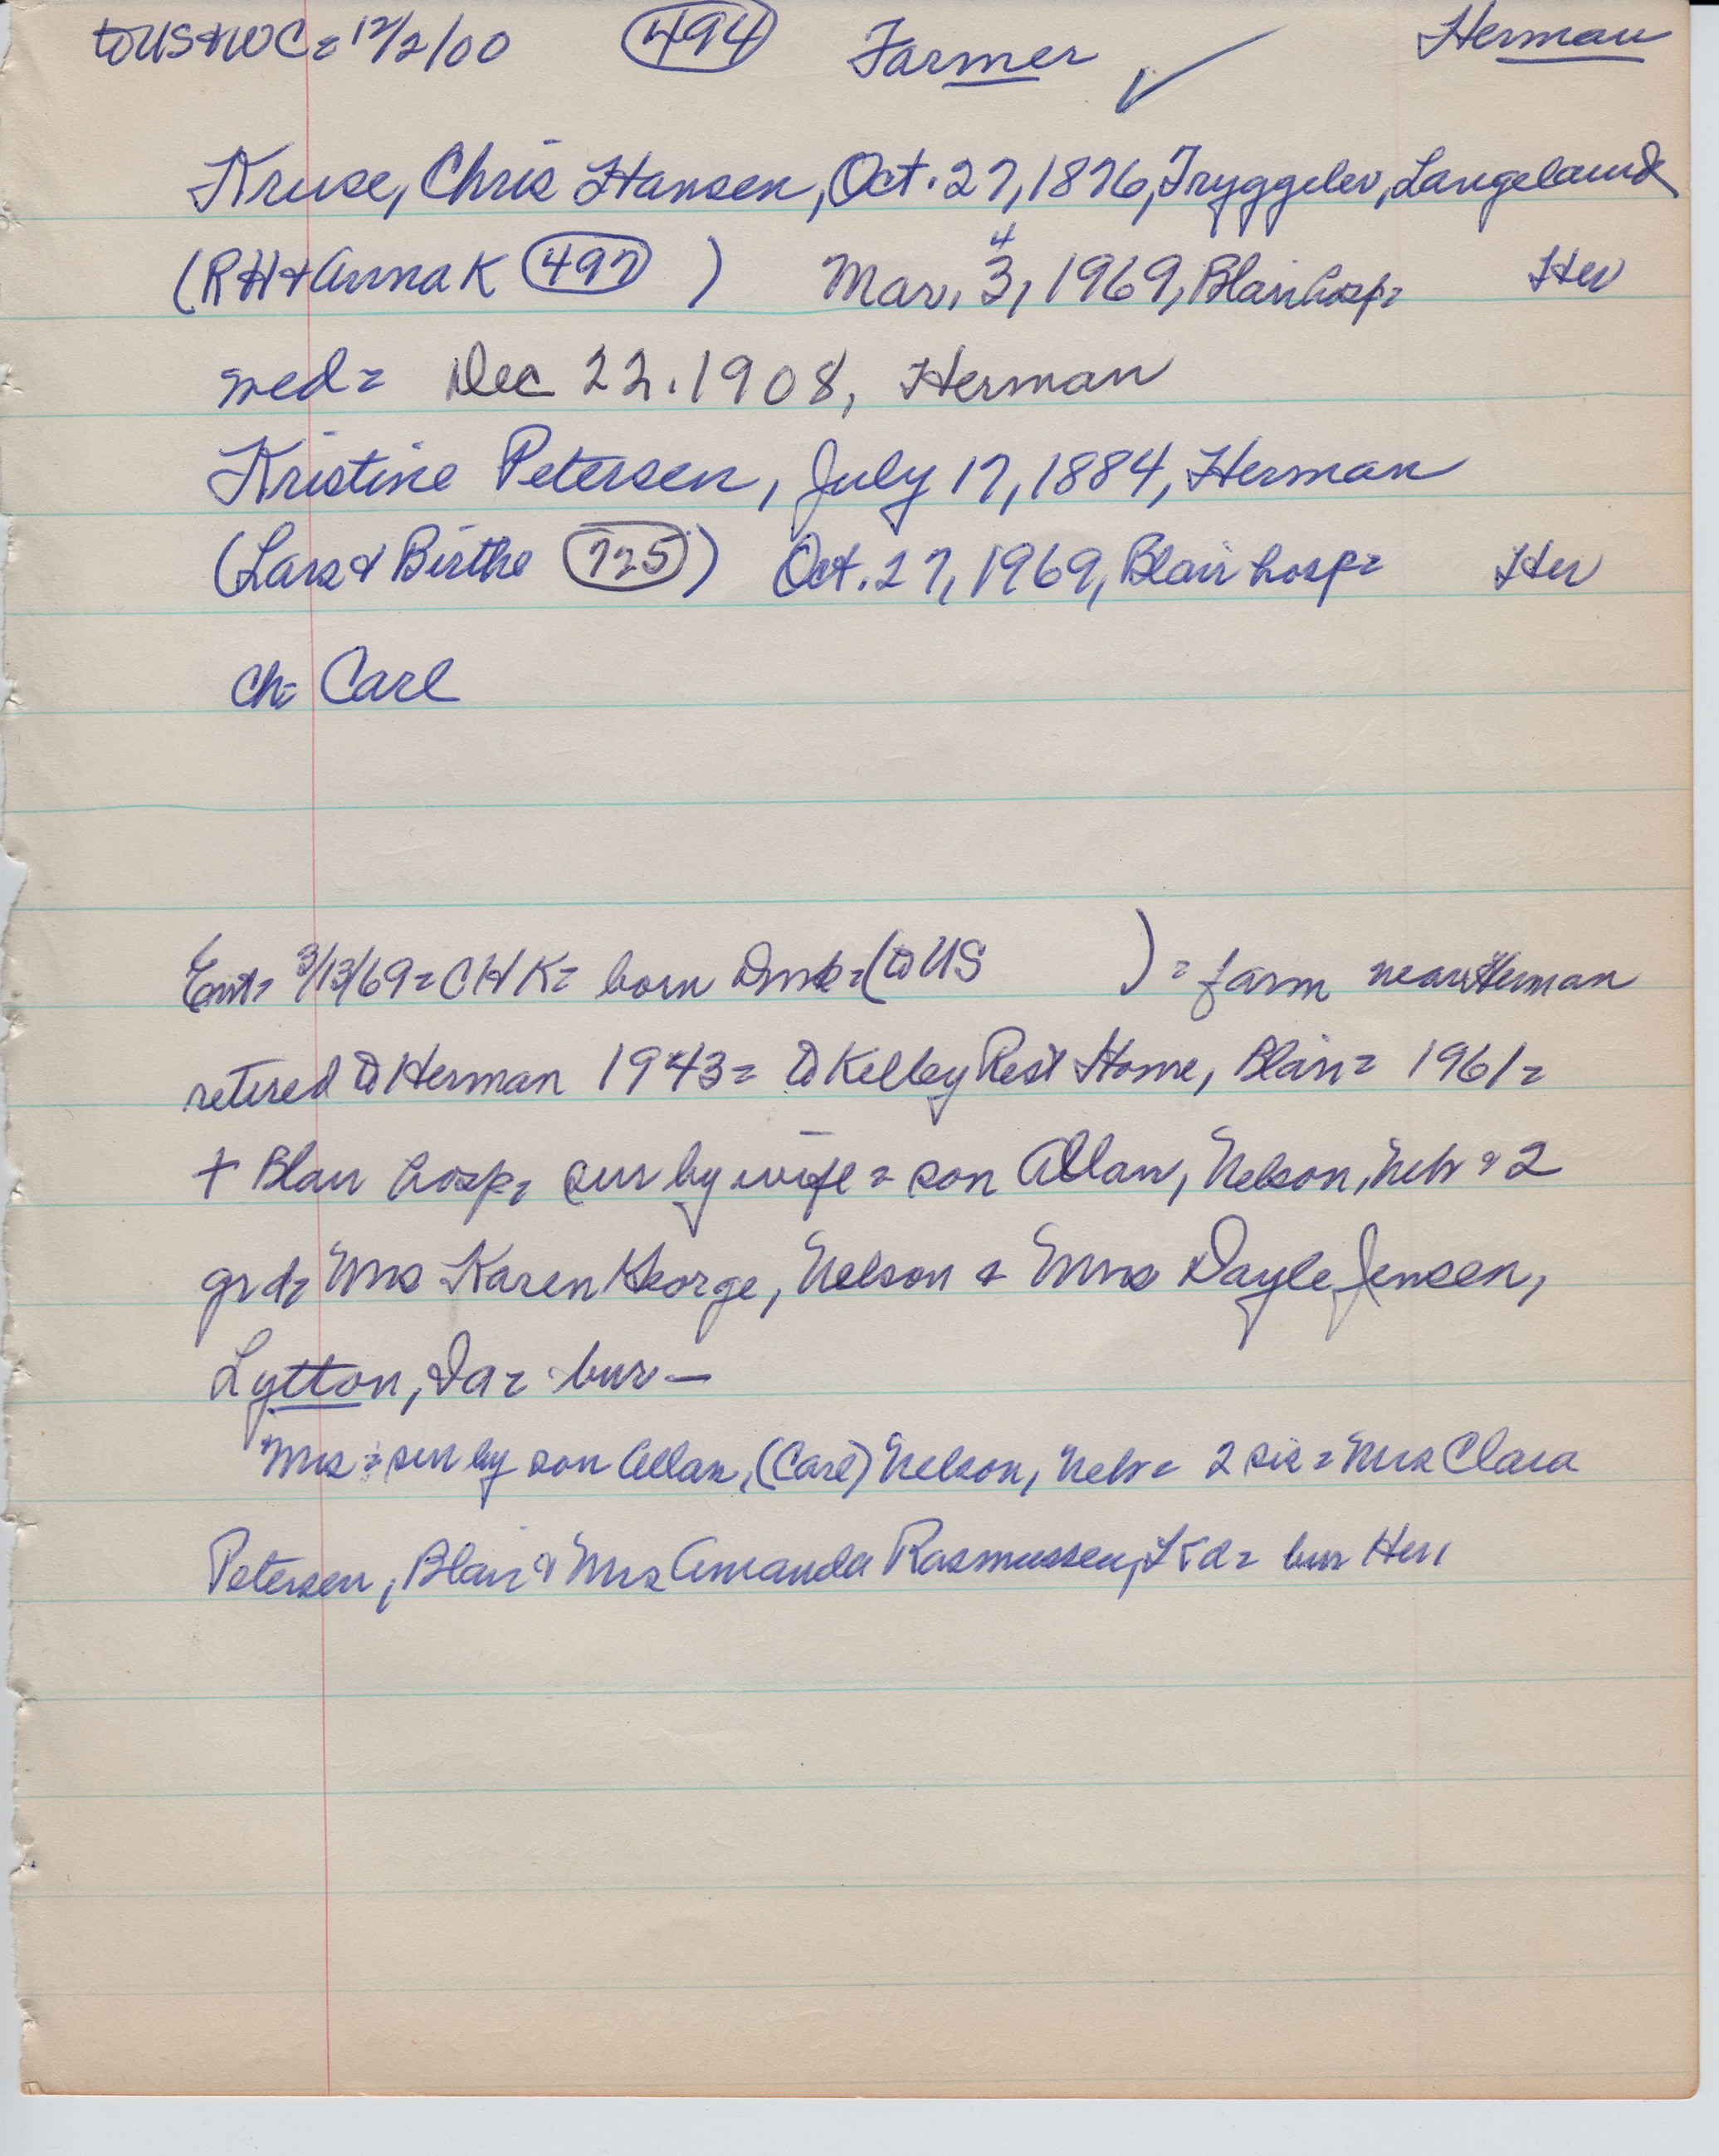 to US & WC = 12/2/00 494 Farmer ✓ Herman
Kruse, Chris Hansen, Oct. 27, 1876, Tryggelev, Langeland
(RH & Anna K 497 ) Mar. 3, 1969, Blair hosp = Her
4
wed = Dec 22. 1908, Herman
Kristine Petersen, July 17, 1884, Herman
(Lars & Birthe 725) Oct. 27, 1969, Blair hosp = Her
ch = Carl
Ent = 3/13/69 = CHK = born Dmk = (to US ) = farm near Herman
retired to Herman 1943 = to Kelley Rest Home, Blair = 1961 =
+ Blair hosp = sur by wife = son Allan, Nelson, Neb & 2
grd = Mrs Karen George, Nelson & Mrs Dayle Jensen,
Lytton, Ia = bur —
Mrs = sur by son Allan, (Carl) Nelson, Neb = 2 sis = Mrs Clara
Petersen, Blair & Mrs Amanda Rasmussen, Kd = bur Her